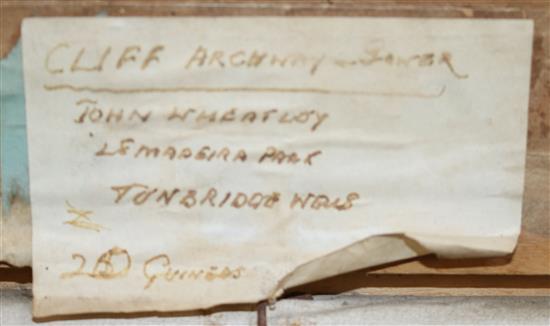 CLIFF ARCHWAY - GOWER
JOHN WHEATLEY
PARK
TUNBRIDGE WELLS
GUINEAS